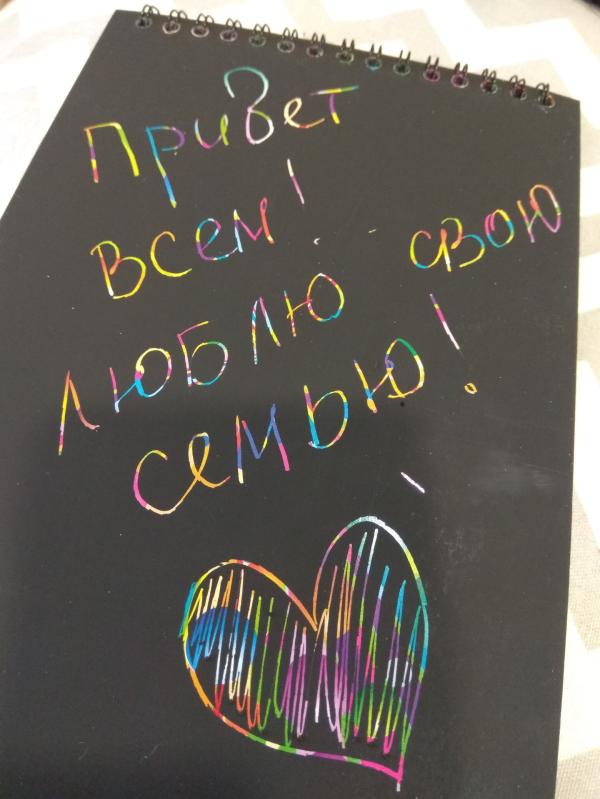 Привет
всем!
люблю свою
семью!